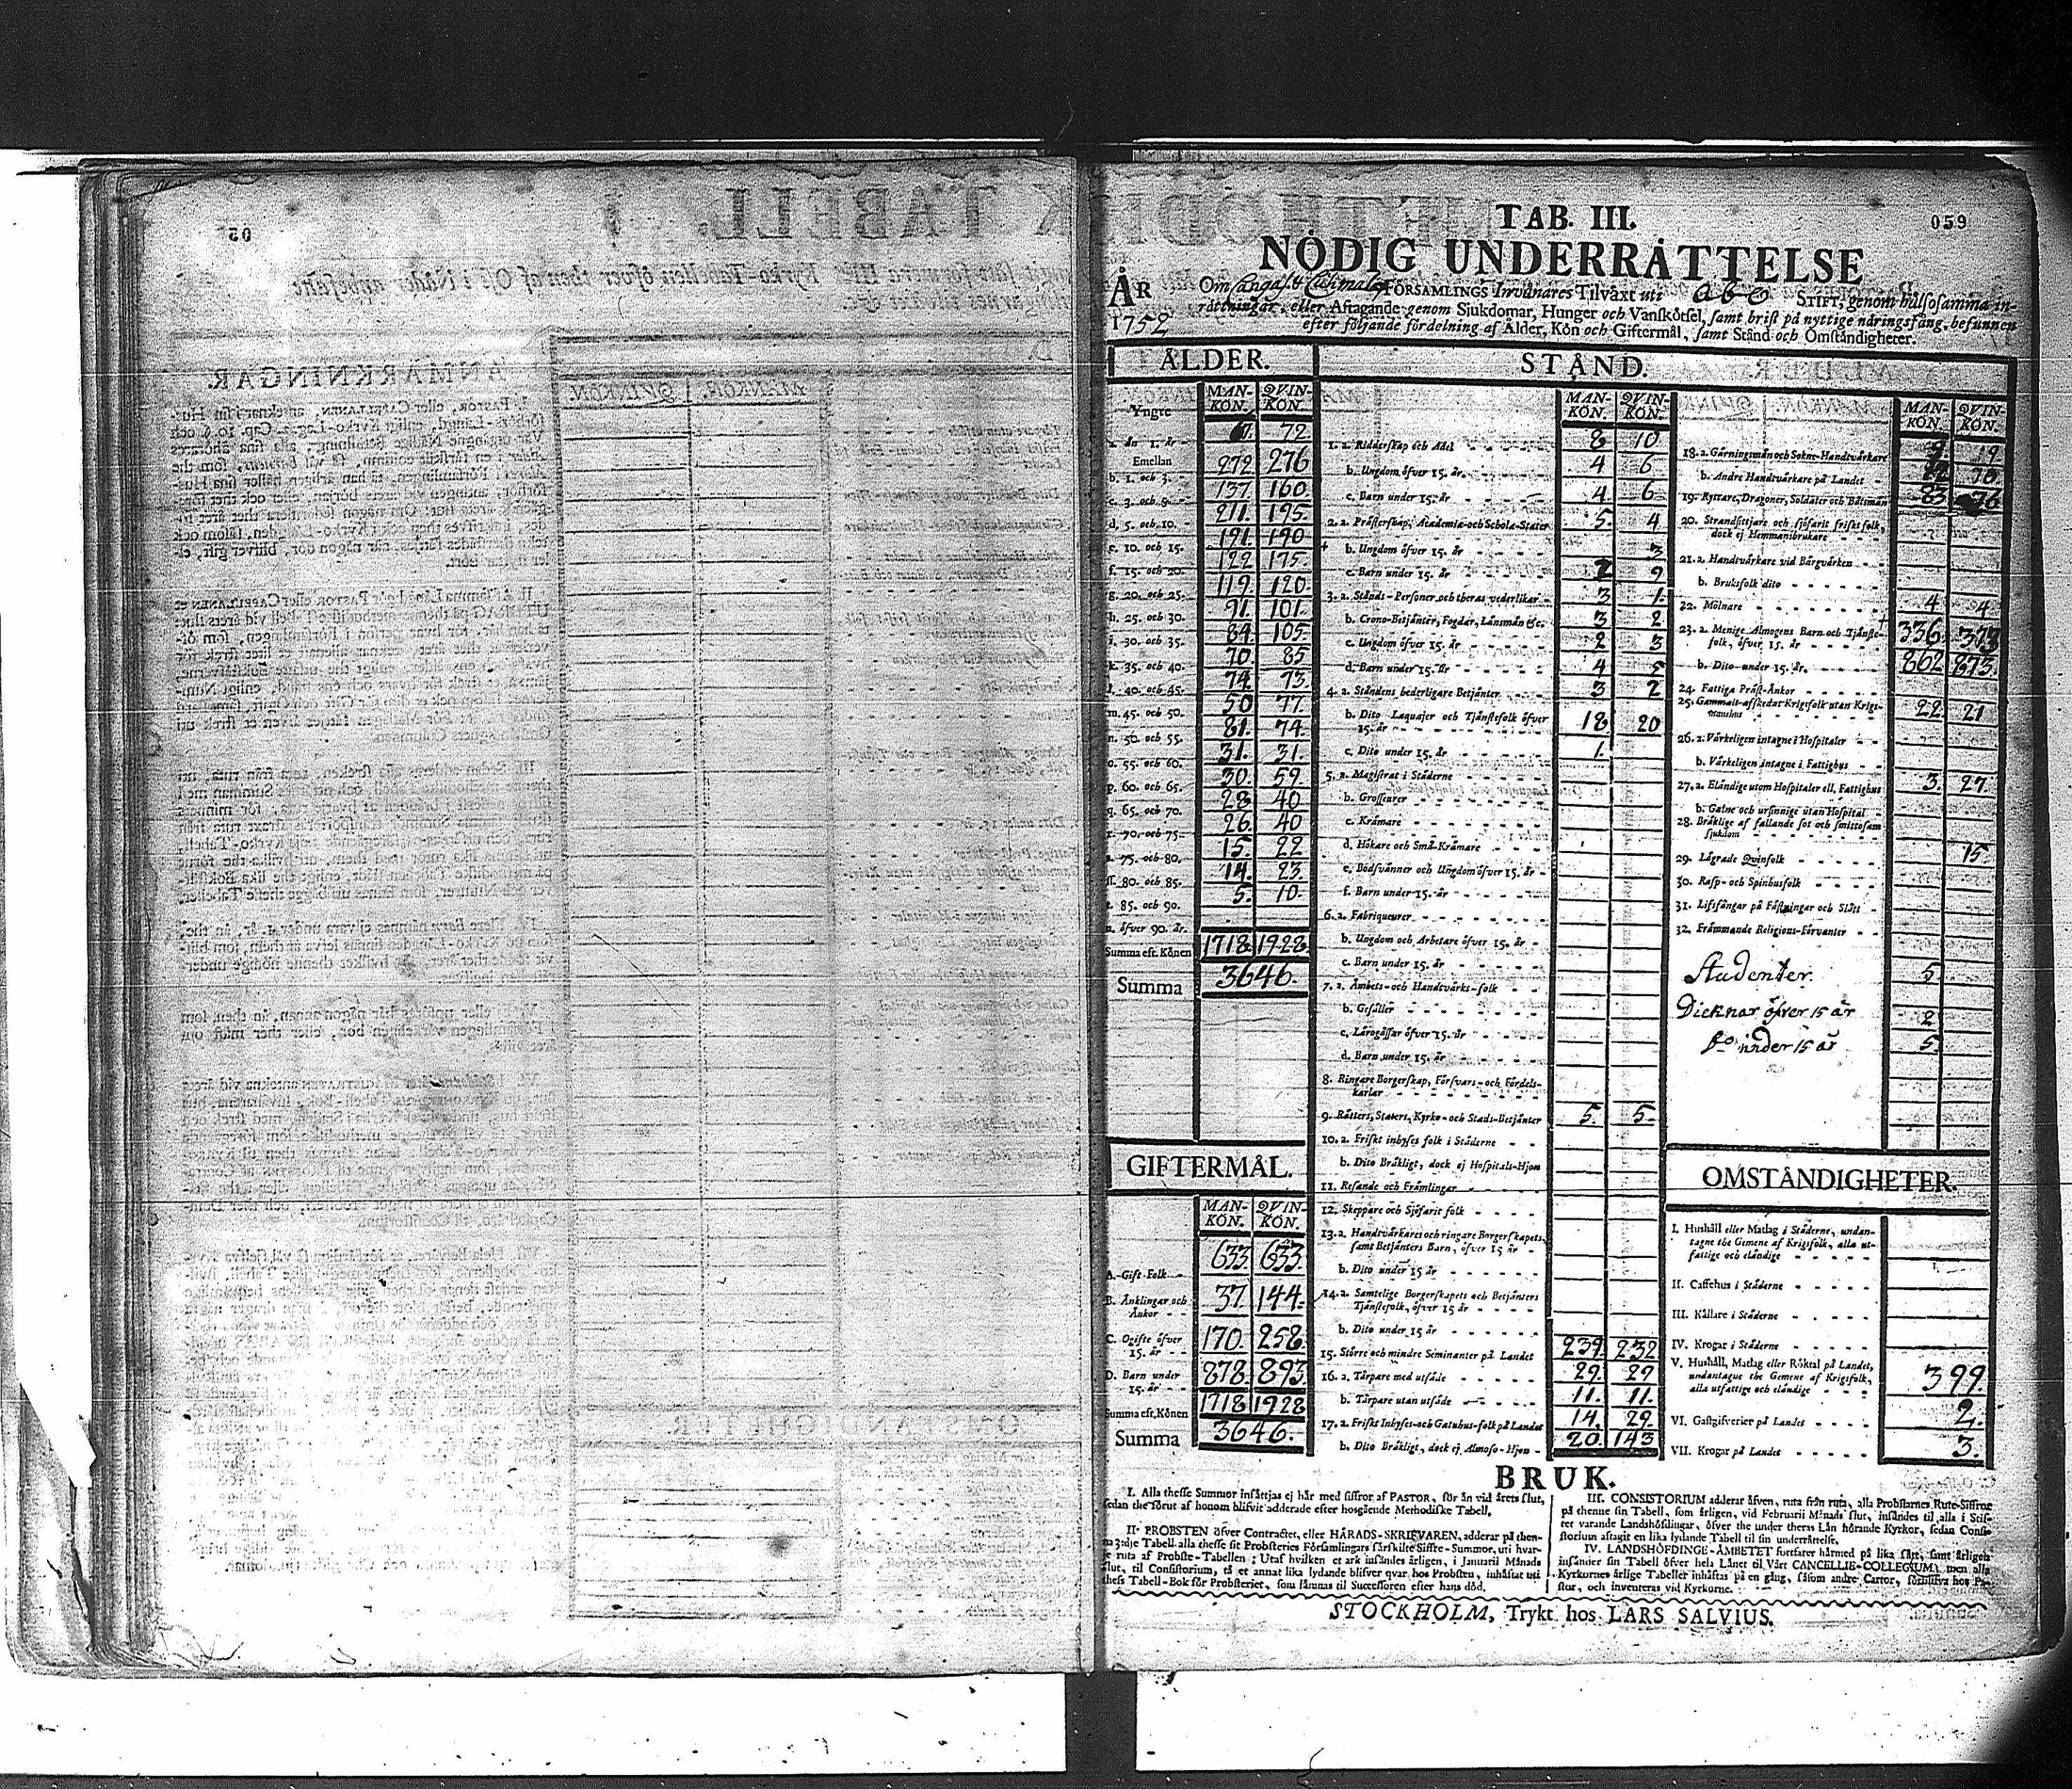 TAB. III.
059
NÖDIG UNDERRÄTTELSE
ÅR 1752
Om FÖRSAMLINGS Invånares Tilväxt uti Åbo STIFT, genom hälsosamma in-
rättningar, eller Aftagande genom Sjukdomar, Hunger och Vanskötsel, samt brist på nyttige näringsfång, befunnen
efter följande fördelning af Ålder, Kön och Giftermål, samt Stånd och Omständigheter.
ÅLDER.
MAN-KÖN. QVIN-KÖN.
Yngre
a. än 1. år - 72.
Emellan
b. 1. och 3. - 272 276
c. 3. och 5. - 137 160.
d. 5. och 10. - 211. 195.
e. 10. och 15. 191. 190
f. 15. och 20. 122 175.
g. 20. och 25. 119. 120.
h. 25. och 30. 91. 101.
i. 30. och 35. 84. 105.
k. 35. och 40. 70. 85
l. 40. och 45. 74 73.
m. 45. och 50. 50 77.
n. 50. och 55. 81. 74.
o. 55. och 60. 31. 31.
p. 60. och 65. 30. 59.
q. 65. och 70. 28. 40
r. 70. och 75. 26. 40
s. 75. och 80. 15. 22.
ss. 80. och 85. 14. 23.
t. 85. och 90. 5. 10.
u. öfver 90. år.
Summa eft. Könen 1718. 1928.
Summa 3646.
GIFTERMÅL.
MAN-KÖN. QVIN-KÖN.
A. Gift Folk - 633. 633.
B. Änklingar och Änkor - 37. 144.
C. Ogifte öfver 15. år - - 170. 258.
D. Barn under 15. år - - 878. 893.
Summa eft. Könen 1718 1928
Summa 3646.
STÅND.
MAN-KÖN. QVIN-KÖN.
1. a. Ridderskap och Adel 8 10
b. Ungdom öfver 15. år. 4 6
c. Barn under 15. år 4. 6
2. a. Prästerskap, Academiæ och Scholæ-Stater 5. 4
b. Ungdom öfver 15. år 3
c. Barn under 15. år 9
3. a. Stånds-Personer och theras vederlikar 3 1.
b. Crono-Betjänter, Fogdar, Länsmän &c. 3 2
c. Ungdom öfver 15. år 2 3
d. Barn under 15. år 4 5
4. a. Ståndens hederligare Betjänter 3 2
b. Dito Laquajer och Tjänstefolk öfver 15. år 18 20
c. Dito under 15. år 1.
5. a. Magistrat i Städerne
b. Grosseurer
c. Krämare
d. Hökare och Små-Krämare
e. Bodsvänner och Ungdom öfver 15. år
f. Barn under 15. år
6. a. Fabriqueurer
b. Ungdom och Arbetare öfver 15. år
c. Barn under 15. år
7. a. Ämbets- och Handtvärks-folk
b. Gesäller
c. Lärogåssar öfver 15. år
d. Barn under 15. år
8. Ringare Borgerskap, Försvars- och Fördels-karlar
9. Rätters, Staters, Kyrko- och Stads-Betjänter 5. 5.
10. a. Friskt inhyses folk i Städerne
b. Dito Bräkligt, dock ej Hospitals-Hjon
11. Resande och Främlingar
12. Skeppare och Sjöfarit folk
13. a. Handtvärkares och ringare Borgerskapets, samt Betjänters Barn, öfver 15 år
b. Dito under 15 år
14. a. Samtelige Borgerskapets och Betjänters Tjänstefolk, öfver 15 år
b. Dito under 15 år
15. Större och mindre Seminanter på Landet 239. 232
16. a. Torpare med utsäde 29. 29
b. Torpare utan utsäde 11. 11.
17. a. Friskt Inhyses- och Gatuhus-folk på Landet 14. 29.
b. Dito Bräkligt, dock ej Almoso-Hjon - 20. 143
MAN-KÖN. QVIN-KÖN.
18. a. Gärningsmän och Sokne-Handtvärkare 19
b. Andre Handtvärkare på Landet
19. Ryttare, Dragoner, Soldater och Båtsmän 83 76
20. Strandsittjare och sjöfarit friskt folk, dock ej Hemmansbrukare
21. a. Handtvärkare vid Bärgvärken
b. Bruksfolk dito
22. Mölnare 4 4
23. a. Menige Almogens Barn och Tjänstefolk, öfver 15. år 336. 373
b. Dito under 15. år. 862 873.
24. Fattiga Präst-Änkor
25. Gammalt afskedat Krigsfolk utan Krigsmanshus 22. 21
26. a. Värkeligen intagne i Hospitaler
b. Värkeligen intagne i Fattighus
27. a. Eländige utom Hospitaler ell. Fattighus 3. 27.
b. Galne och ursinnige utan Hospital
28. Bräklige af fallande sot och smittosam sjukdom
29. Lägrade Qvinfolk 15.
30. Rasp- och Spinhusfolk
31. Lifsfångar på Fästningar och Slått
32. Främmande Religions-Förvanter
Studenter. 5.
Dicknar öfver 15 år 2.
D:o under 15 år 5.
OMSTÄNDIGHETER.
I. Hushåll eller Matlag i Städerne, undantagne the Gemene af Krigsfolk, alla utfattige och eländige
II. Caffehus i Städerne
III. Källare i Städerne
IV. Krogar i Städerne
V. Hushåll, Matlag eller Röktal på Landet, undantagne the Gemene af Krigsfolk, alla utfattige och eländige 399.
VI. Gästgifverier på Landet 2.
VII. Krogar på Landet 3.
BRUK.
I. Alla thesse Summor insättjas ej här med siffror af PASTOR, för än vid årets slut,
sedan the förut af honom blifvit adderade efter hosgående Methodiske Tabell.
II. PROBSTEN öfver Contractet, eller HÄRADS-SKRIFVAREN, adderar på then-
na 3:dje Tabell alla thesse sit Probsteries Församlingars särskilte Siffre-Summor, uti hvar-
je ruta af Probste-Tabellen: Utaf hvilken et ark insändes årligen, i Januarii Månads
slut, til Consistorium, tå et annat lika lydande blifver qvar hos Probsten, inhäftat uti
thess Tabell-Bok för Probsteriet, som lämnas til Successoren efter hans död.
III. CONSISTORIUM adderar äfven, ruta från ruta, alla Probstarnes Rute-Siffror
på thenne sin Tabell, som årligen, vid Februarii Månads slut, insändes til alla i Stif-
tet varande Landshöfdingar, öfver the under theras Län hörande Kyrkor, sedan Consi-
storium aftagit en lika lydande Tabell til sin underrättelse.
IV. LANDSHÖFDINGE-ÄMBETET fortfarer härmed på lika sätt, samt årligen
insänder sin Tabell öfver hela Länet til Vårt CANCELLIE-COLLEGIUM; men alla
Kyrkornes årlige Tabeller inhäftas på en gång, såsom andre Cartor, förblifva hos Pa-
stor, och inventeras vid Kyrkorne.
STOCKHOLM, Trykt hos LARS SALVIUS.